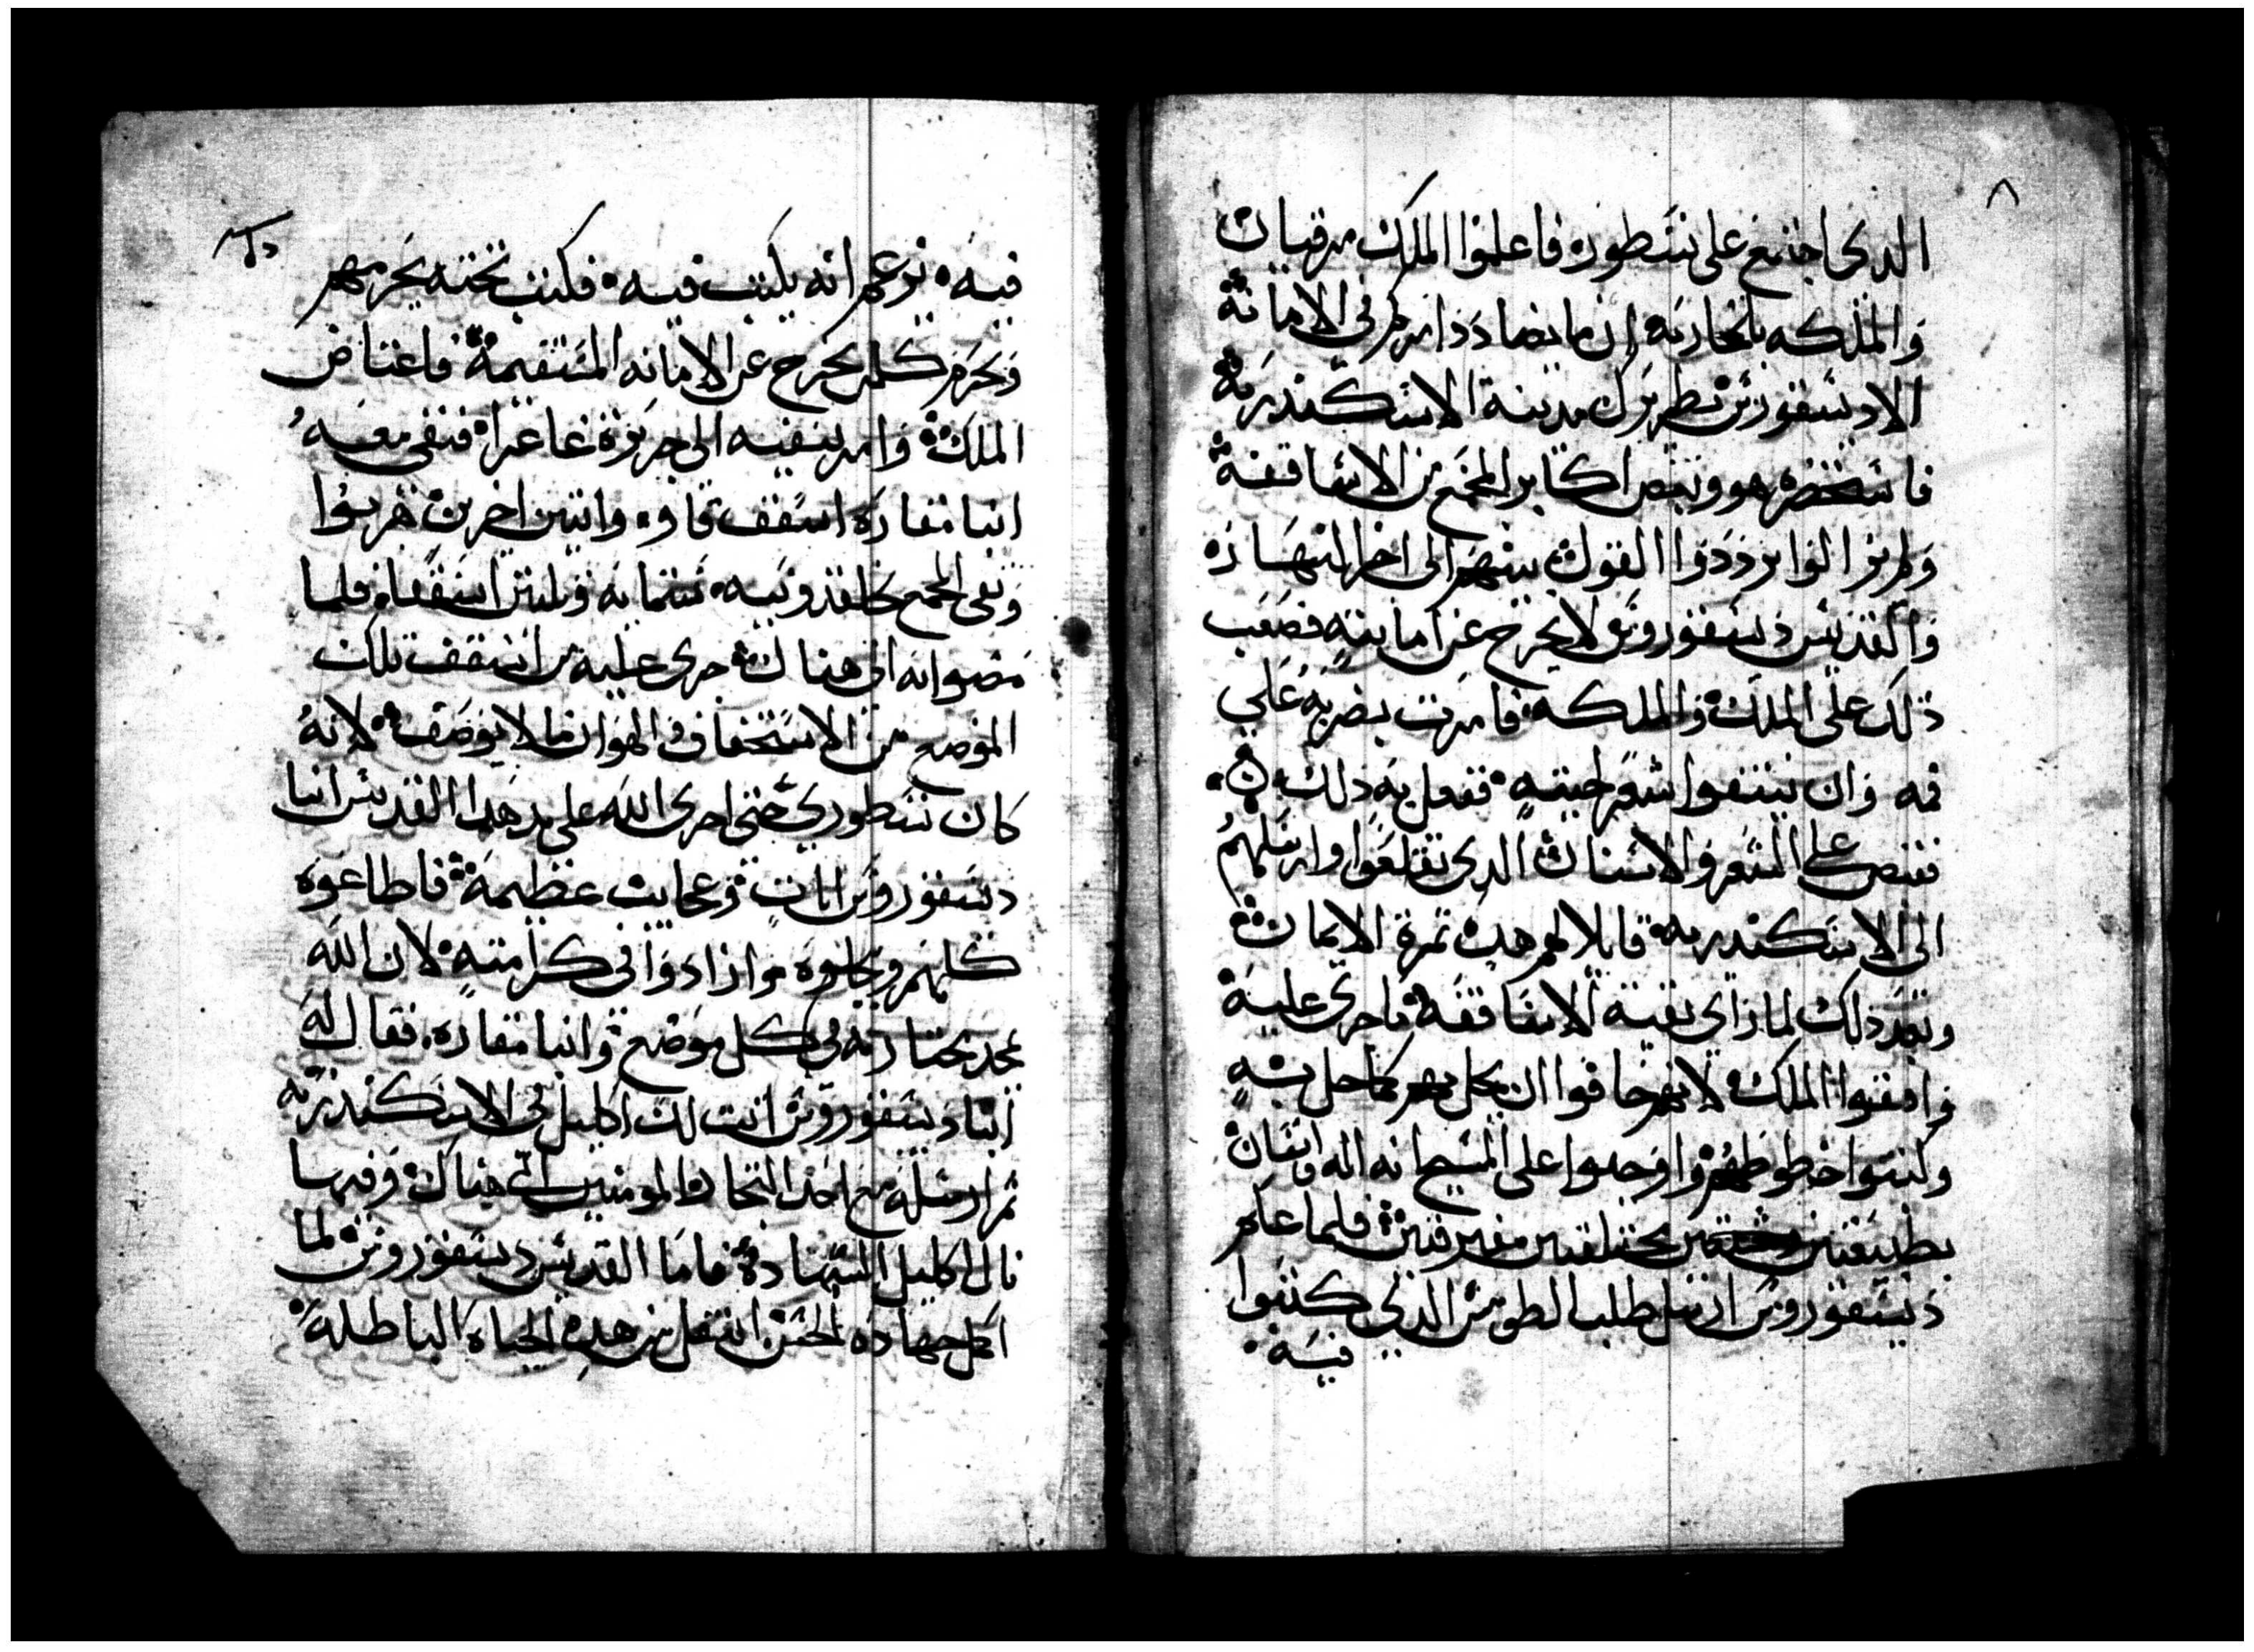 ٨
الدى اجتمع على نسطوره فاعلموا الملك مرقيان
والملكه بلخاريه ان ما يضادد امركم في الامانة
الا ديسقورس بطريرك مدينة الاسكندريه
فاستحضره هو وبعض اكابر المجمع من الاساقفة
ولم يزالوا يرددوا القول بينهم الى اخر النهار
والقديس ديسقوروس لا يخرج عن امانته فصعب
ذلك على الملك والملكه فامرت بضربه على
فمه وان ينتفوا شعر لحيته ففعل به ذلك
فقبض على الشعر والاسنان الدى تقلعوا وارسلهم
الى الاسكندريه قايلا لهم هده تمرة الايمان
وبعد دلك لما راى بقية الاساقفه ما جرى عليه
وافقوا الملك لانهم خافوا ان يحل بهم كما حل به
وكتبوا خطوطهم واوجبوا على المسيح انه اله وانسان
بطبيعتين مختلفتين مفترقتين فلما علم
ديسقوروس ارسل طلب الطومس الدي كتبوا
فيه
فيه بزعم انه يكتب فيه فكتب تحته يحرمهم
ويحرم كلمن يخرج عن الامانه المستقيمة فاغتاض
الملك وامر بنفيه الى جزيرة غاغرا فنفي معه
انبا مقاره اسقف قاو واتنين اخرين هربوا
وبقى المجمع بخلقدونيه ستمايه وتلتين اسقفا فلما
مضوا به الى هناك جرى عليه من اسقف تلك
الموضع من الاستخفاف والهوان ما لا يوصف لانه
كان نسطوري حتى اجرى الله على يد هدا القديس انبا
ديسقوروس ايات وعجايب عظيمة فاطاعوه
كلهم وبجلوه وازادوا في كرامته لان الله
يمجد مختاريه في كل موضع وانبا مقاره فقال له
انبا ديسقوروس انت لك اكليل في الاسكندريه
تم ارسله مع احد التجار المومنين الى هناك وفيها
نال اكليل الشهادة فاما القديس ديسقوروس لما
اكمل جهاده الحسن انتقل من هده الحياه الباطلة